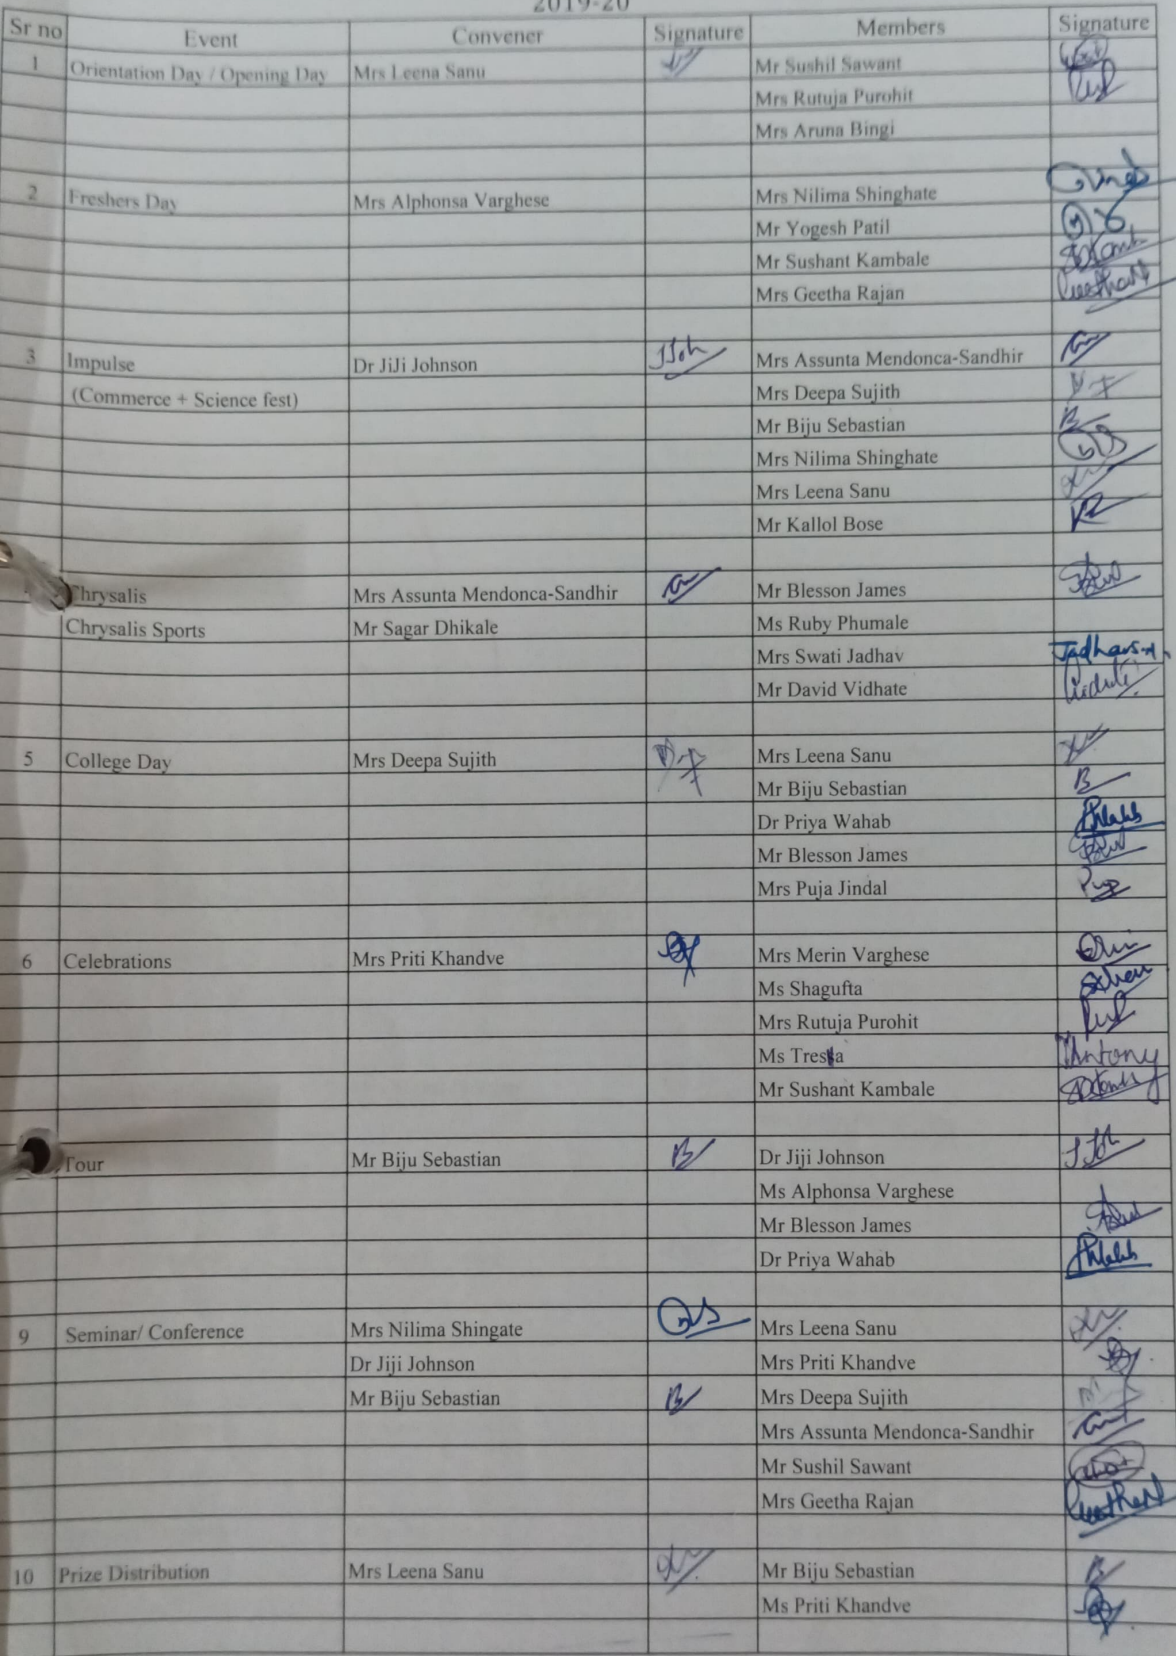 2019-20
Sr no Event Convener Signature Members Signature
1 Orientation Day / Opening Day Mrs Leena Sanu Mr Sushil Sawant
Mrs Rutuja Purohit
Mrs Aruna Bingi
2 Freshers Day Mrs Alphonsa Varghese Mrs Nilima Shinghate
Mr Yogesh Patil
Mr Sushant Kambale
Mrs Geetha Rajan
3 Impulse Dr JiJi Johnson Mrs Assunta Mendonca-Sandhir
(Commerce + Science fest) Mrs Deepa Sujith
Mr Biju Sebastian
Mrs Nilima Shinghate
Mrs Leena Sanu
Mr Kallol Bose
Chrysalis Mrs Assunta Mendonca-Sandhir Mr Blesson James
Chrysalis Sports Mr Sagar Dhikale Ms Ruby Phumale
Mrs Swati Jadhav
Mr David Vidhate
5 College Day Mrs Deepa Sujith Mrs Leena Sanu
Mr Biju Sebastian B
Dr Priya Wahab
Mr Blesson James
Mrs Puja Jindal
6 Celebrations Mrs Priti Khandve Mrs Merin Varghese
Ms Shagufta
Mrs Rutuja Purohit
Ms Tressa Antony
Mr Sushant Kambale
Tour Mr Biju Sebastian B Dr Jiji Johnson
Ms Alphonsa Varghese
Mr Blesson James
Dr Priya Wahab
9 Seminar/ Conference Mrs Nilima Shingate Mrs Leena Sanu
Dr Jiji Johnson Mrs Priti Khandve
Mr Biju Sebastian B Mrs Deepa Sujith
Mrs Assunta Mendonca-Sandhir
Mr Sushil Sawant
Mrs Geetha Rajan
10 Prize Distribution Mrs Leena Sanu Mr Biju Sebastian B
Ms Priti Khandve